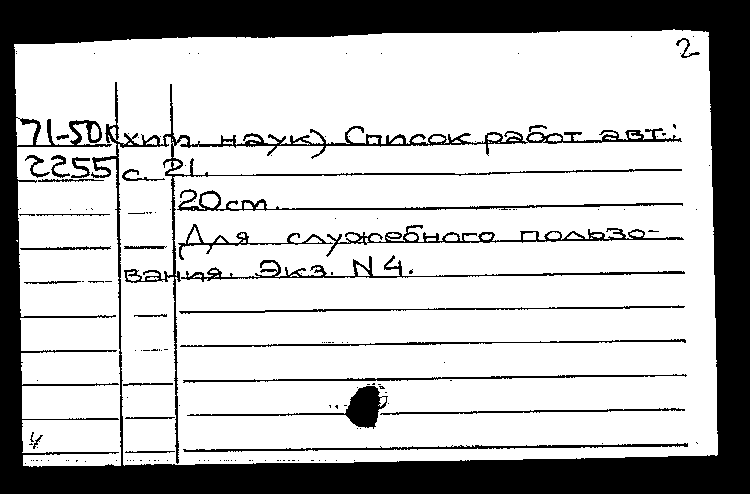 2
71-50К (хим. наук) Список работ авт.:
2255 с. 21.
20 cm.
Для служебного пользо-
вания. Экз. N 4.
4